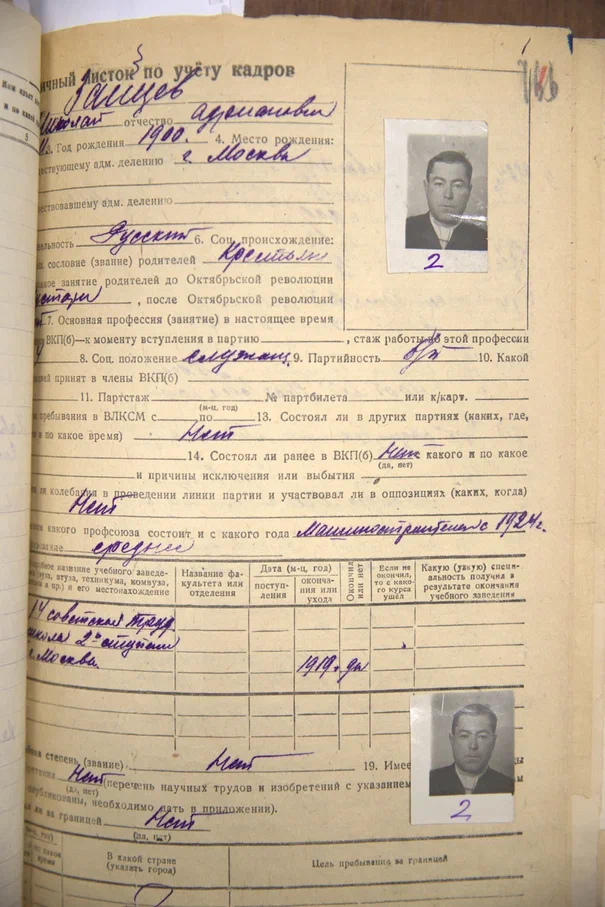 ичный листок по учёту кадров
Зайцев
Николай отчество Адрианович
3. Год рождения 1900. 4. Место рождения:
ствующему адм. делению г. Москва
ствовавшему адм. делению
льность Русский 6. Соц. происхождение:
сословие (звание) родителей Крестьяне
ное занятие родителей до Октябрьской революции
, после Октябрьской революции
7. Основная профессия (занятие) в настоящее время
ВКП(б)—к моменту вступления в партию , стаж работы по этой профессии
8. Соц. положение служащ. 9. Партийность б/п 10. Какой
цией принят в члены ВКП(б)
11. Партстаж № партбилета или к/карт.
(м-ц, год)
пребывания в ВЛКСМ с по 13. Состоял ли в других партиях (каких, где,
и по какое время) Нет
14. Состоял ли ранее в ВКП(б) Нет какого и по какое
(да, нет)
и причины исключения или выбытия
ли колебания в проведении линии партии и участвовал ли в оппозициях (каких, когда)
Нет
какого профсоюза состоит и с какого года Машиностроителей с 1924 г.
среднее
робное название учебного заведе- Название фа- Дата (м-ц, год) Окончил или нет Если не Какую (узкую) специ-
вуза, втуза, техникума, комвуза, культета или поступ- оконча- окончил, альность получил в
и пр.) и его местонахождение отделения ления ния или то с како- результате окончания
ухода го курса учебного заведения
ушел
14 советская труд
школа 2й ступени
г. Москва. 1919 г. да
степень (звание) Нет 19. Имее
Нет (перечень научных трудов и изобретений с указанием
(да, нет)
публикованы, необходимо дать в приложении).
ли за границей Нет
(да, нет)
В какой стране Цель пребывания за границей
(указать город)
2
2